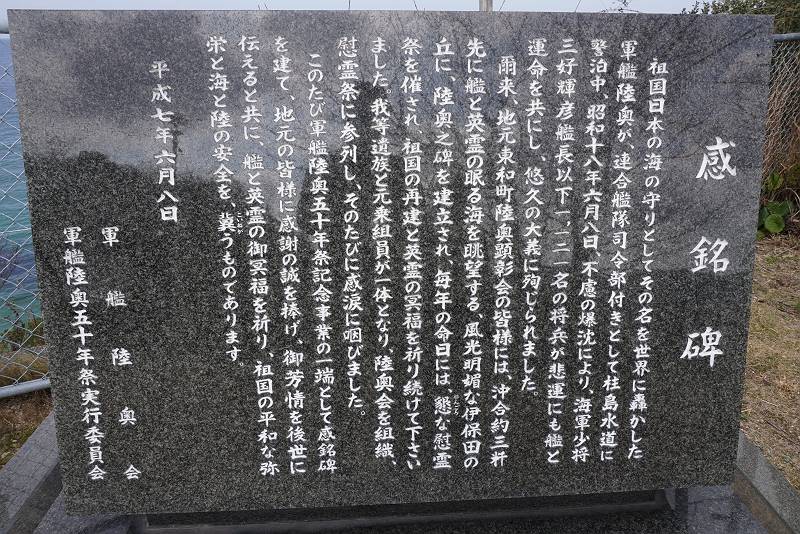 感銘碑
祖国日本の海の守りとしてその名を世界に轟かした
軍艦陸奥が、連合艦隊司令部付きとして柱島水道に
警泊中、昭和十八年六月八日、不慮の爆沈により、海軍少将
三好輝彦艦長以下一、一二一名の将兵が悲運にも艦と
運命を共にし、悠久の大義に殉じられました。
爾来、地元東和町陸奥顕彰会の皆様には、沖合約三粁
先に艦と英霊の眠る海を眺望する、風光明媚な伊保田の
丘に、陸奥之碑を建立され、毎年の命日には、懇な慰霊
祭を催され、祖国の再建と英霊の冥福を祈り続けて下さい
ました。我等遺族と元乗組員が一体となり、陸奥会を組織、
慰霊祭に参列し、そのたびに感涙に咽びました。
このたび軍艦陸奥五十年祭記念事業の一端として感銘碑
を建て、地元の皆様に感謝の誠を捧げ、御芳情を後世に
伝えると共に、艦と英霊の御冥福を祈り、祖国の平和な弥
栄と海と陸の安全を、冀うものであります。
平成七年六月八日
軍艦陸奥会
軍艦陸奥五十年祭実行委員会